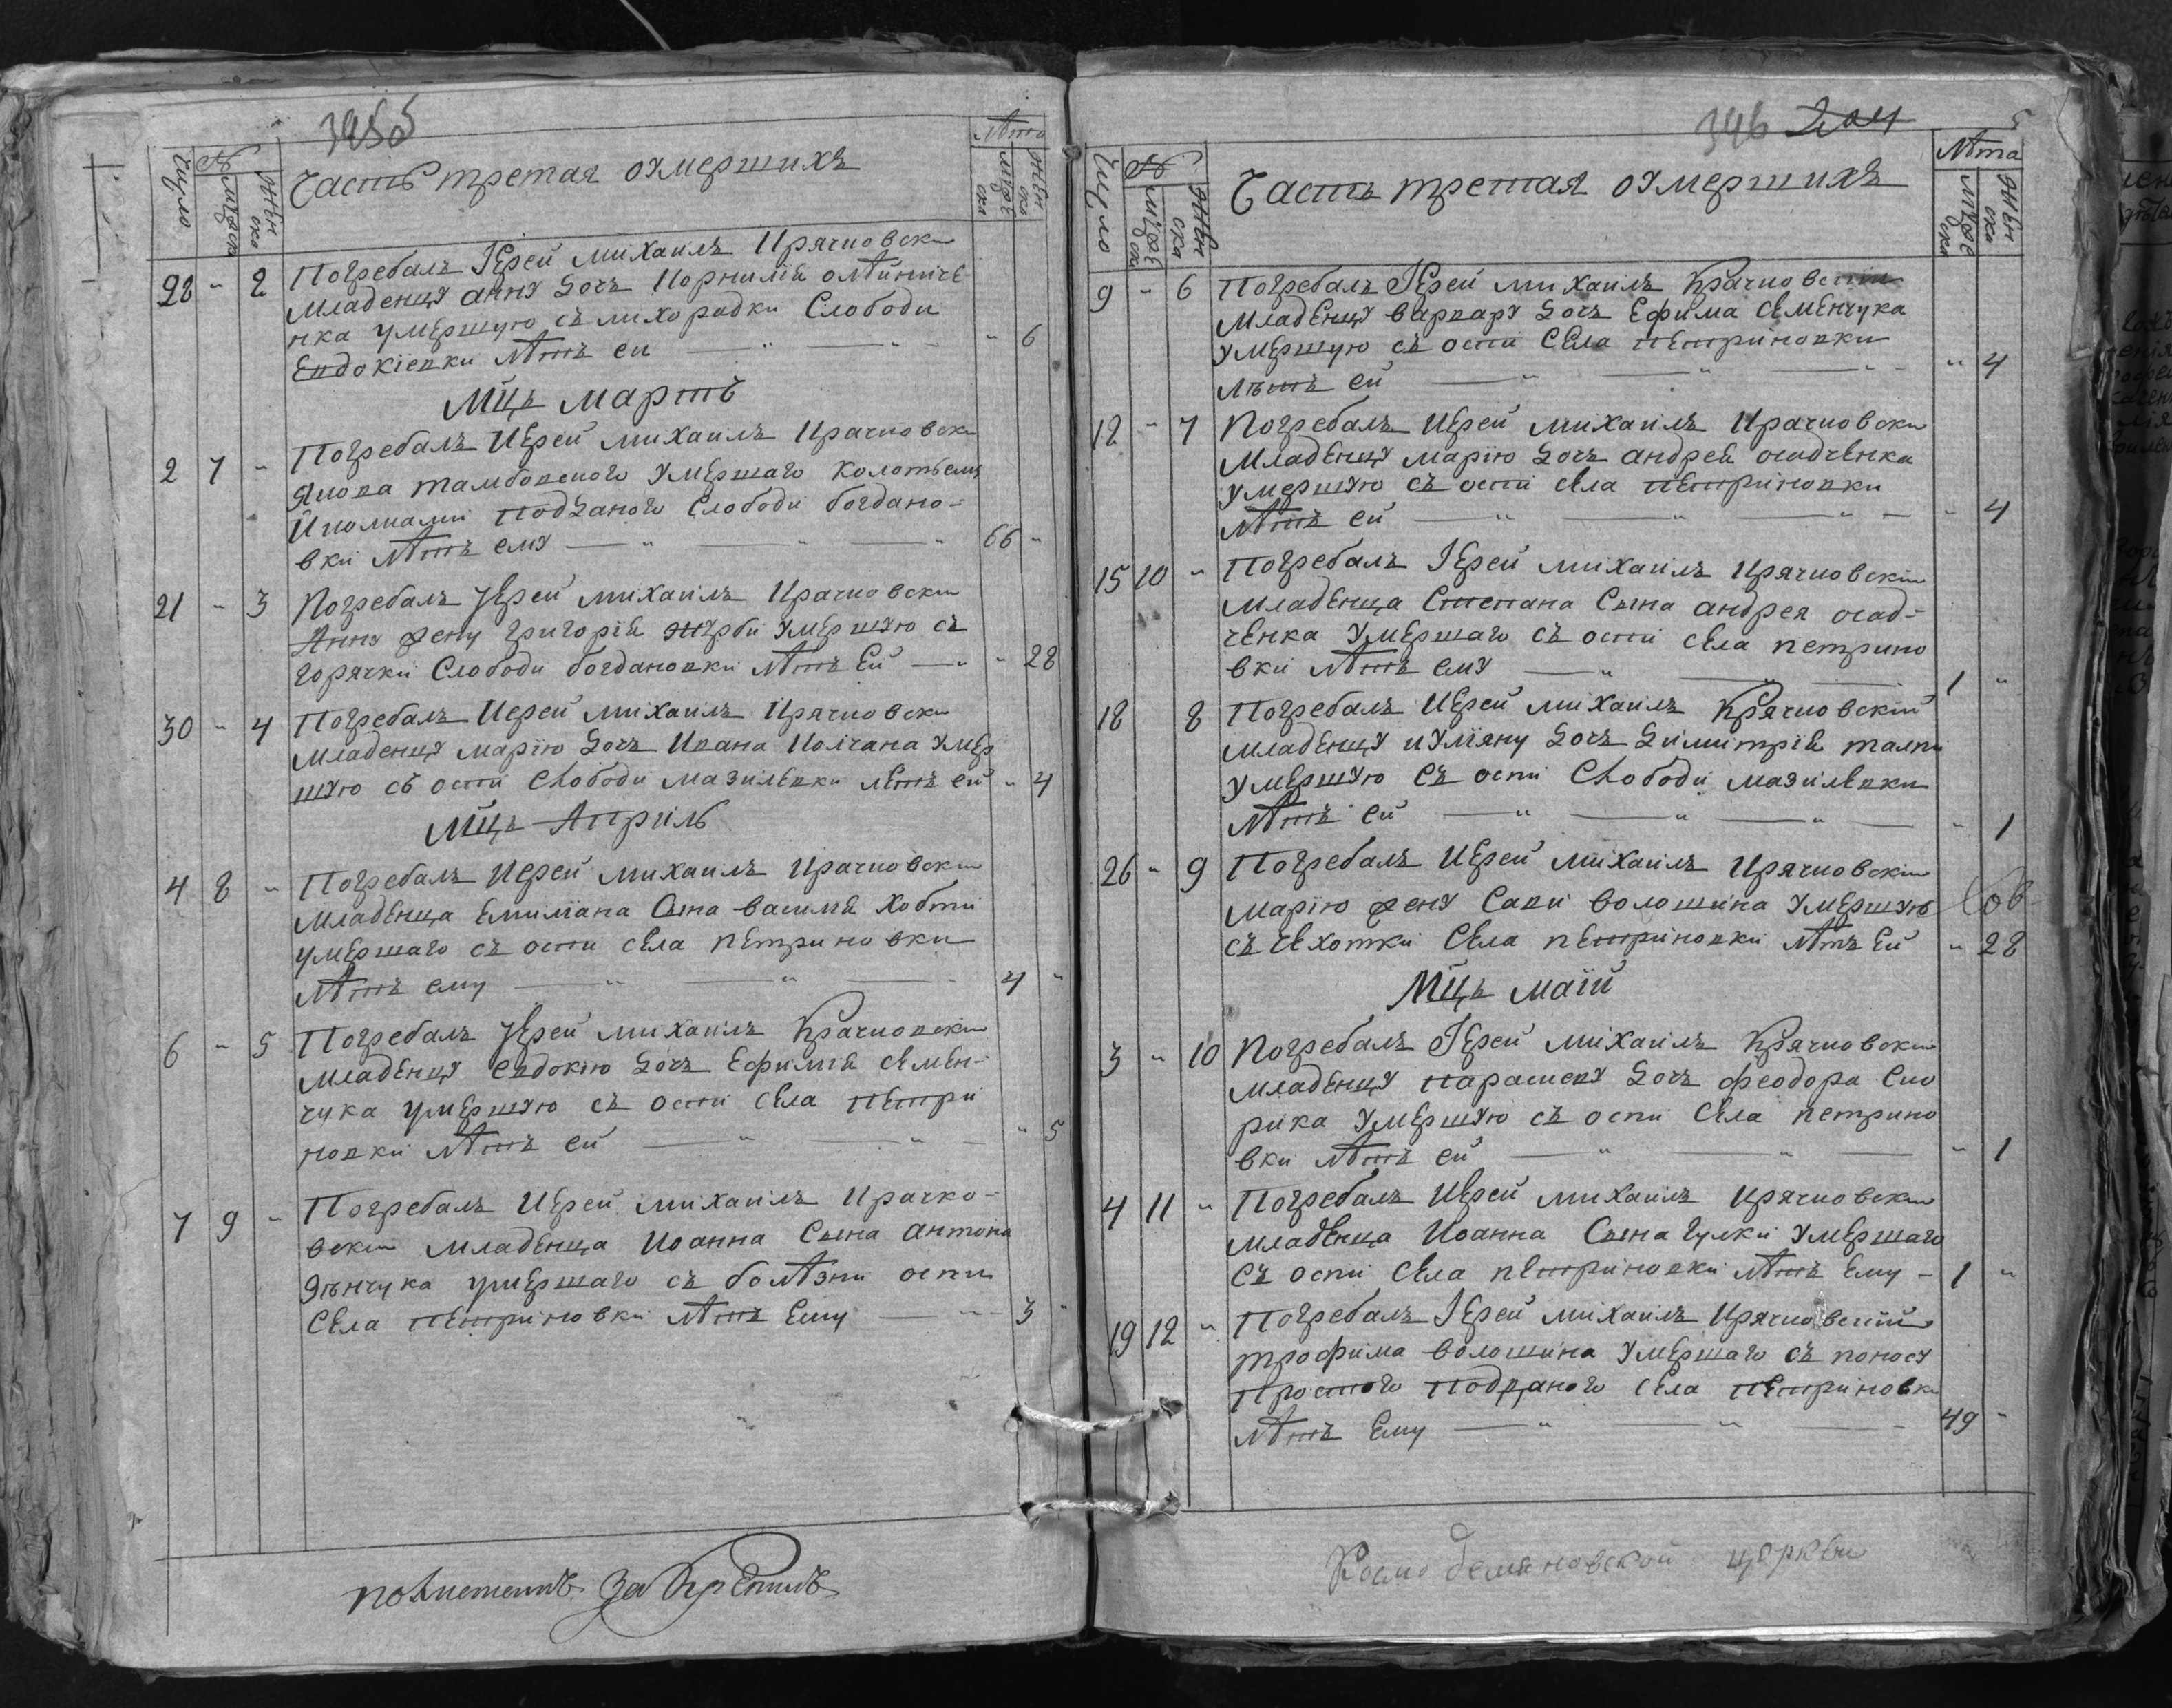 Часть третая оумершихъ
Лѣта
Число № мужеска женска
мужеска женска
28 " 2 Погребалъ Іерей михаилъ Крачковски
младенцу анну дочь Корнилія олѣйниче-
нка умершую съ лихорадки Слободи
Евдокіевки лѣтъ ей " 6
Мць мартъ
2 7 " Погребалъ Иерей михаилъ Крачковски
Якова тамбовского умершаго колотьемъ
подданого Слободи богдано-
вки лѣтъ ему 66 "
21 " 3 Погребалъ Иерей михаилъ Крачковски
Анну жену григорія умершую съ
горячки Слободи богдановки лѣтъ Ей " 28
30 " 4 Погребалъ Иерей михаилъ Крачковски
младенцу марію дочь Ивана Колчана умер
шую съ оспи Слободи мазилевки лѣтъ ей " 4
Мць Априль
4 8 " Погребалъ Иерей михаилъ Крачковски
младенца Емиліана Сына василія Ховти
умершаго съ оспи села петриновки
лѣтъ ему 4 "
6 " 5 Погребалъ Иерей михаилъ Крачковски
младенцу евдокію дочь Ефимія семен-
чука умершую съ оспи села петри
новки лѣтъ ей " 5
7 9 " Погребалъ Иерей михаилъ Крачко-
вски младенца Иоанна Сына антона
умершаго съ болѣзни оспи
Села петриновки лѣтъ Ему 3 "
346
Часть третая оумершихъ
Лѣта
Число № мужеска женска
мужеска женска
9 " 6 Погребалъ Іерей михаилъ Крачковски
младенцу варвару дочь Ефима семенчука
умершую съ оспи села петриновки
лѣтъ ей " 4
12 " 7 Погребалъ Иерей михаилъ Крачковски
младенцу марію дочь андрея осадченка
умершую съ оспи села петриновки
лѣтъ ей " 4
15 10 " Погребалъ Іерей михаилъ Крячковски
младенца Степана Сына андрея осад-
ченка умершаго съ оспи села петрино
вки лѣтъ ему 1 "
18 8 Погребалъ Иерей михаилъ Крячковскій
младенцу иуліяну дочь димитрія
умершую съ оспи Слободи мазилевки
лѣтъ ей " 1
26 " 9 Погребалъ Иерей михаилъ Крячковски
марію жену Сави волошина умершую
съ сехотки Села петриновки лѣтъ Ей " 28
Мць маій
3 " 10 Погребалъ Іерей михаилъ Крячковски
младенцу параскеву дочь феодора Ско
рика умершую съ оспи Села петрино
вки лѣтъ ей " 1
4 11 " Погребалъ Иерей михаилъ Крячковски
младенца Иоанна Сына гулки умершаго
съ оспи села петриновки лѣтъ Ему 1 "
19 12 " Погребалъ Іерей михаилъ Крячковскій
трофима волошина умершаго съ поносу
простого подданого села петриновки
лѣтъ Ему 49 "
Космо демяновской церкви